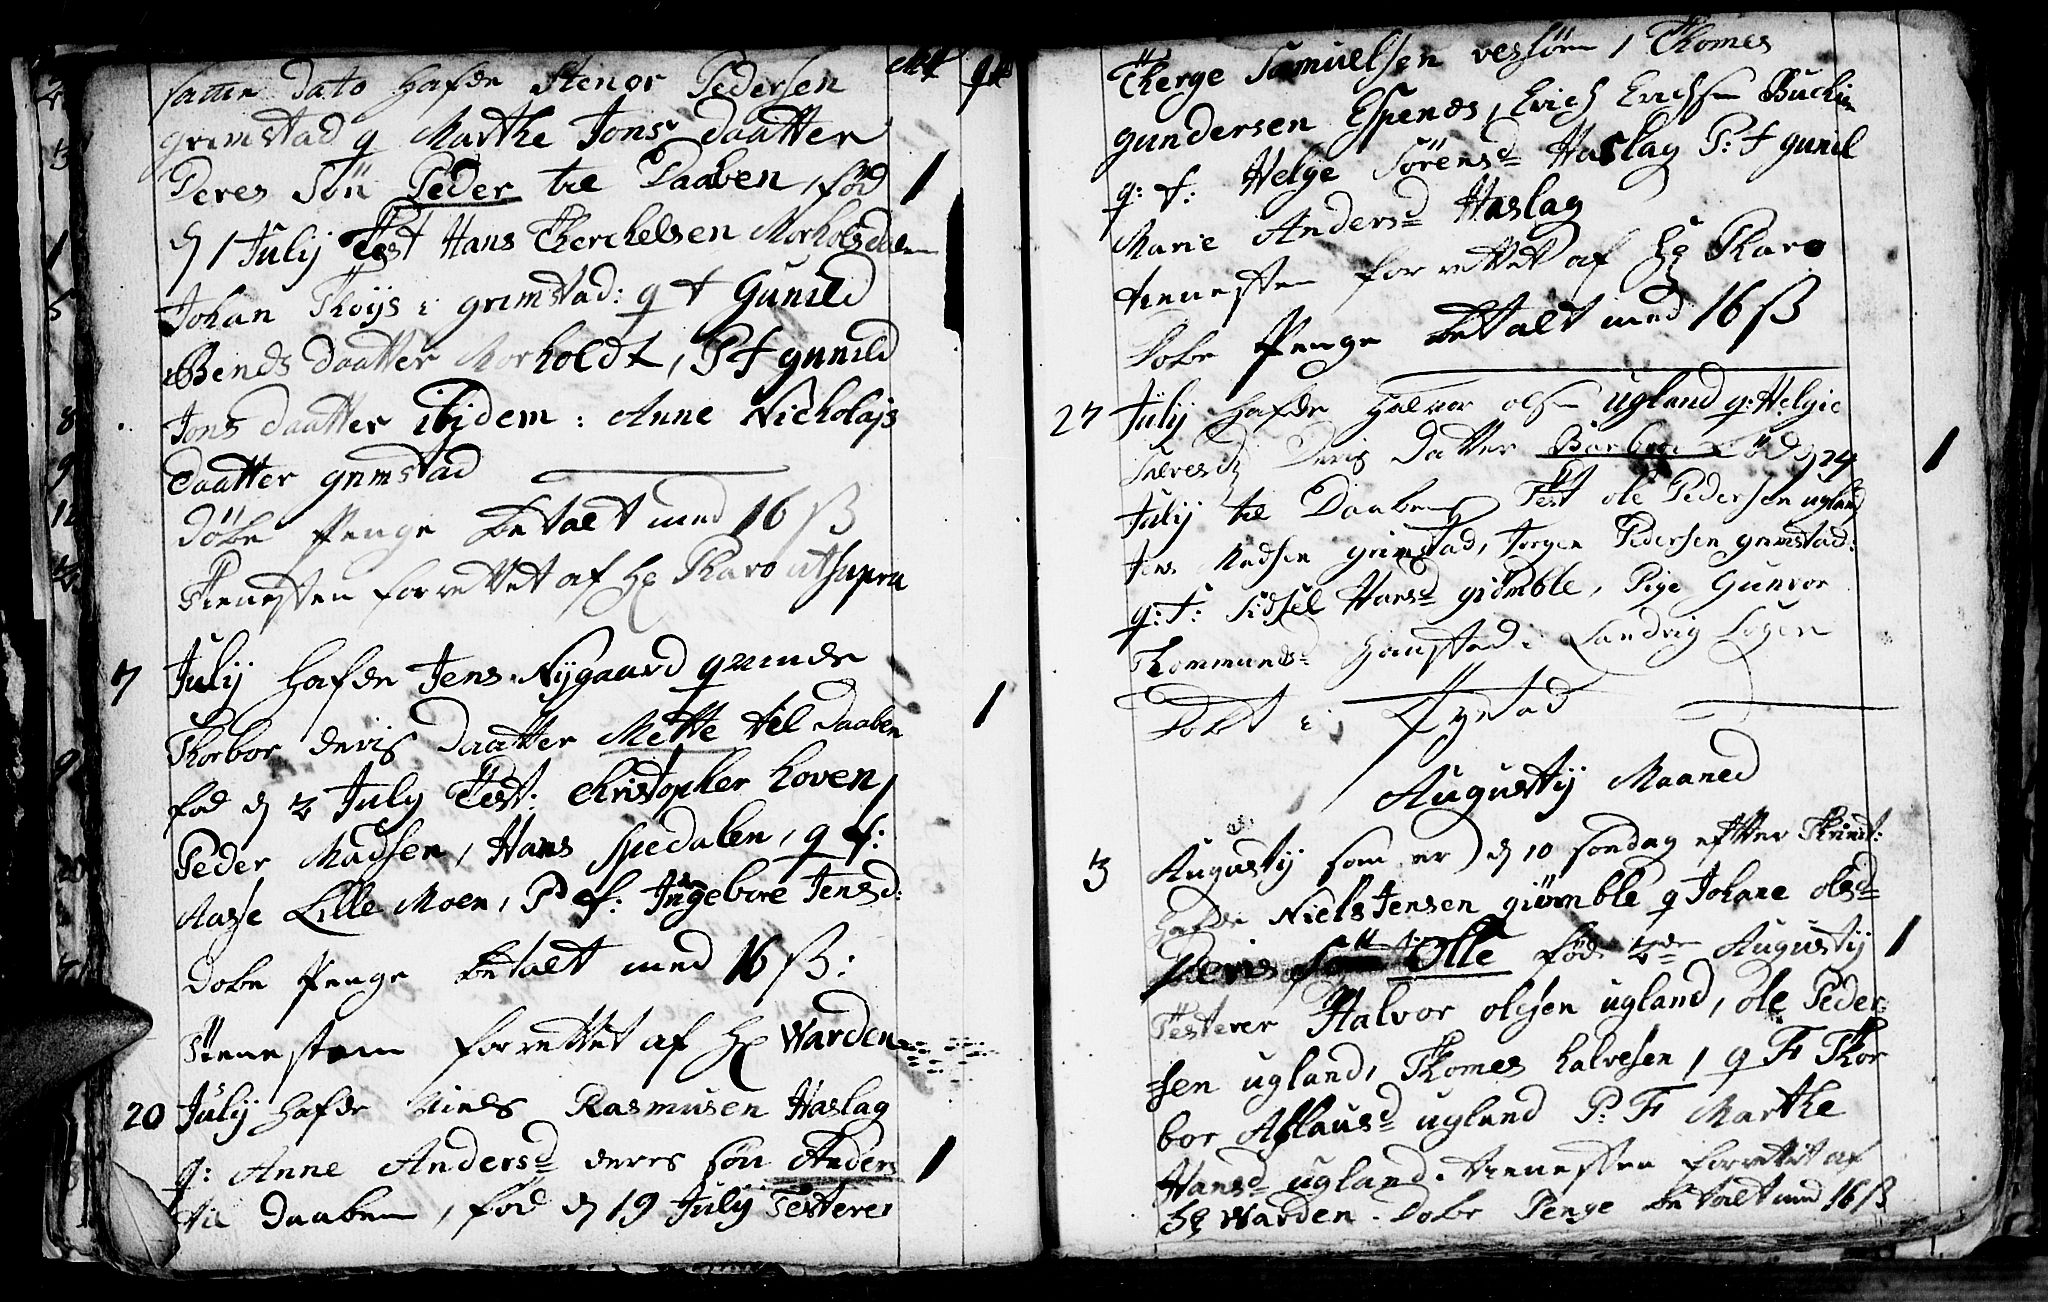 MK qk
samme Dato hafde Stenor Pedersen
grimstad q Marthe Jons daatter
Deres Sön Peder til Daaben, föd 1
d 1 Julij Test Hans Therchelsen Morholtsdalen
Johan Thoÿs i grimstad: q f Gunild
Bends daatter Morholdt, P f gunild
Jons daatter ibidem: Anne Nicholajs
daatter grimstad
Döbe Penge betalt med 16 ß
Tienesten forrettet af Hr Tharo ut supra
7 Julij hafde Jens Nÿgaard q quinde
Thorbor deris daatter Mette til daaben 1
fød d 2 July Test: Christopher hoven,
Peder Madsen, Hans Spedalen, q f:
Aasse Lille Moen, P f: Ingebore Jensd:
Dobe Penge betalt med 16 ß:
Tienesten forrettet af Hr Warden
20 Julij hafde Niels Rasmusen Haslag
q: Anne Andersd deres sön Anders 1
til Daaben, föd d 19 Julij Testerer
Therge Samuelsen vessöen, Thomes
gundersen Espenes, Erich Erichsen Buchen
q: f: Helge Sörensd Haslag P: f gunil
Marie Andersd Haslag
tienesten forrettet af Hr Tharo
Dobe Penge betalt med 16 ß
27 Julij hafde Halvor olsen ugland q: Helgie
Deris Datter Barbroe föd d 24 1
Julij til Daaben Test ole Pedersen ugland
Jens Madsen grimstad, Jorgen Pedersen grimstad:
q: f: Sidsel Hansd giömble, Pige Gunvor
Thommundsd i Landvig Sogen
Döbt i
Augustij Maaned
3 Augustij som er d 10 sondag efter Trinit:
hafde Niels Jensen giömble q Johane olesd
Deris Sön Olle föd 2de Augustij 1
Testerer Halvor olesen ugland, ole Peder-
-sen ugland, Thomes halvesen, q F Thor
bor Aslausd ugland P: F Marthe
Hansd ugland. tienesten forrettet af
Hr Warden. Dobe Penge betalt med 16 ß